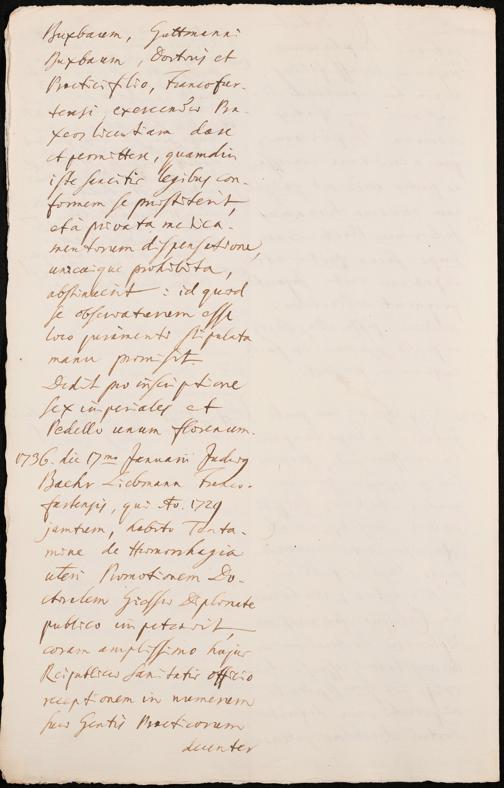 Buxbaum, Guttmanni
Buxbaum, Doctoris et
Practici filio, Francofur-
tensi exercendæ Pra-
xeos licentiam dare
et permittere, quamdiu
iste sancitis legibus con-
formem se præstiterit,
et à privata medica-
mentorum dispensatione,
unicuique prohibita,
abstinuerit : id quod
se observaturum esse
loco juramenti stipulata
manu promisit.
Dedit pro inscriptione
sex imperiales et
Pedello unum florenum.
1736. die 17mo Januarii Judæus
Baehr Liebmann Franco-
furtensis, qui Ao. 1729
jamtum, habito Tenta-
mine de Hæmorrhagia
uteri Promotionem Do-
ctoralem Giessæ Diplomate
publico impetravit,
coram amplissimo hujus
Reipublicæ Sanitatis officio
receptionem in numerum
suæ Gentis Practicorum
decenter